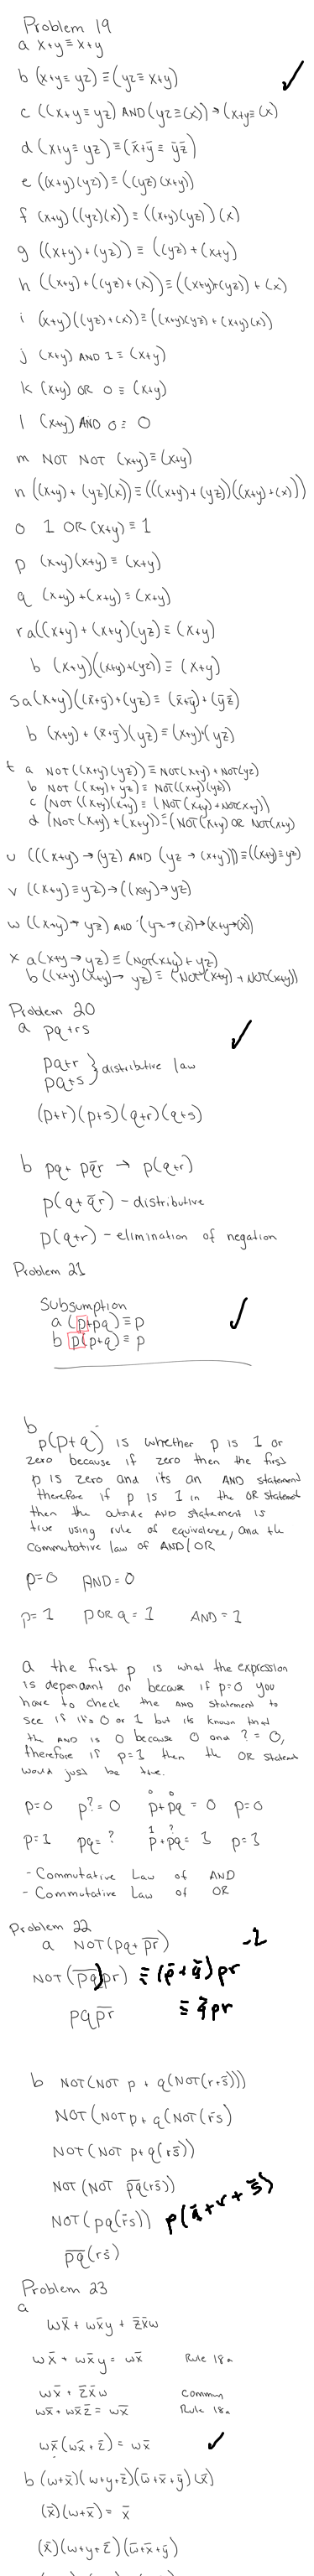 Problem 19
a x+y ≡ x+y
b (x+y ≡ yz) ≡ (yz ≡ x+y)
c ((x+y ≡ yz) AND (yz ≡ (x)) → (x+y ≡ (x)
d (x+y ≡ yz) ≡ (x̄+ȳ ≡ ȳz̄)
e ((x+y)(yz)) ≡ ((yz)(x+y))
f (x+y)((yz)(x)) ≡ ((x+y)(yz))(x)
g ((x+y)+(yz)) ≡ ((yz)+(x+y)
h ((x+y)+((yz)+(x)) ≡ ((x+y)+(yz))+(x)
i (x+y)((yz)+(x)) ≡ ((x+y)(yz)+(x+y)(x))
j (x+y) AND 1 ≡ (x+y)
k (x+y) OR 0 ≡ (x+y)
l (x+y) AND 0 ≡ 0
m NOT NOT (x+y) ≡ (x+y)
n ((x+y)+(yz)(x)) ≡ (((x+y)+(yz))((x+y)+(x)))
o 1 OR (x+y) ≡ 1
p (x+y)(x+y) ≡ (x+y)
q (x+y)+(x+y) ≡ (x+y)
r a((x+y)+(x+y)(yz) ≡ (x+y)
b (x+y)((x+y)+(yz)) ≡ (x+y)
s a (x+y)((x̄+ȳ)+(yz) ≡ (x̄+ȳ)+(ȳz̄)
b (x+y)+(x̄+ȳ)(yz) ≡ (x+y)+(yz)
t a NOT((x+y)(yz)) ≡ NOT(x+y)+NOT(yz)
b NOT((x+y)+yz) ≡ NOT((x+y)(yz))
c (NOT((x+y)(x+y) ≡ (NOT(x+y)+NOT(x+y))
d (NOT(x+y)+(x+y)) ≡ (NOT(x+y) OR NOT(x+y)
u (((x+y) → (yz) AND (yz → (x+y))) ≡ ((x+y) ≡ yz)
v ((x+y) ≡ yz) → ((x+y) → yz)
w ((x+y) → yz) AND (yz → (x) → (x+y → (x))
x a (x+y → yz) ≡ (NOT(x+y) + yz)
b ((x+y)(x+y) → yz) ≡ (NOT(x+y) + NOT(x+y))
Problem 20
a pq+rs
pq+r
pq+s } distributive law
(p+r)(p+s)(q+r)(q+s)
b pq + pq̄r → p(q+r)
p(q+q̄r) - distributive
p(q+r) - elimination of negation
Problem 21
Subsumption
a (p+pq) ≡ p
b p(p+q) ≡ p
b
p(p+q) is whether p is 1 or
zero because if zero then the first
p is zero and its an AND statement
therefore if p is 1 in the OR statement
then the outside AND statement is
true using rule of equivalence, and the
commutative law of AND/OR
p=0 AND=0
p=1 p OR q = 1 AND = 1
a the first p is what the expression
is dependant on because if p=0 you
have to check the AND statement to
see if it's 0 or 1 but its known that
the AND is 0 because 0 and ? = 0,
therefore if p=1 then the OR statement
would just be true.
0 0
p=0 p?=0 p+pq = 0 p=0
1 ?
p=1 pq=? p+pq = 1 p=1
- Commutative Law of AND
- Commutative Law of OR
Problem 22
a NOT(pq+p̄r̄) -2
NOT(p̄q̄)pr) ≡ (p̄+q̄)pr
pqp̄r̄ ≡ q̄pr
b NOT(NOT p + q(NOT(r+s̄)))
NOT(NOT p + q(NOT(r̄s)
NOT(NOT p+q(rs̄))
NOT(NOT p̄q̄(rs̄))
NOT(pq(r̄s)) p(q̄+r+s̄)
p̄q̄(rs̄)
Problem 23
a
wx̄ + wx̄y + z̄x̄w
wx̄ + wx̄y = wx̄ Rule 18a
wx̄ + z̄x̄w Commun
wx̄ + wx̄z̄ = wx̄ Rule 18a
wx̄(wx̄+z̄) = wx̄
b (w+x̄)(w+y+z̄)(w̄+x̄+ȳ)(x̄)
(x̄)(w+x̄) = x̄
(x̄)(w+y+z̄)(w̄+x̄+ȳ)